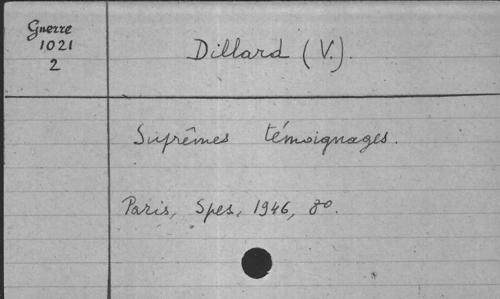 Guerre
1021
2
Dillard (V.).
Suprêmes témoignages.
Paris, Spes, 1946, 8o.